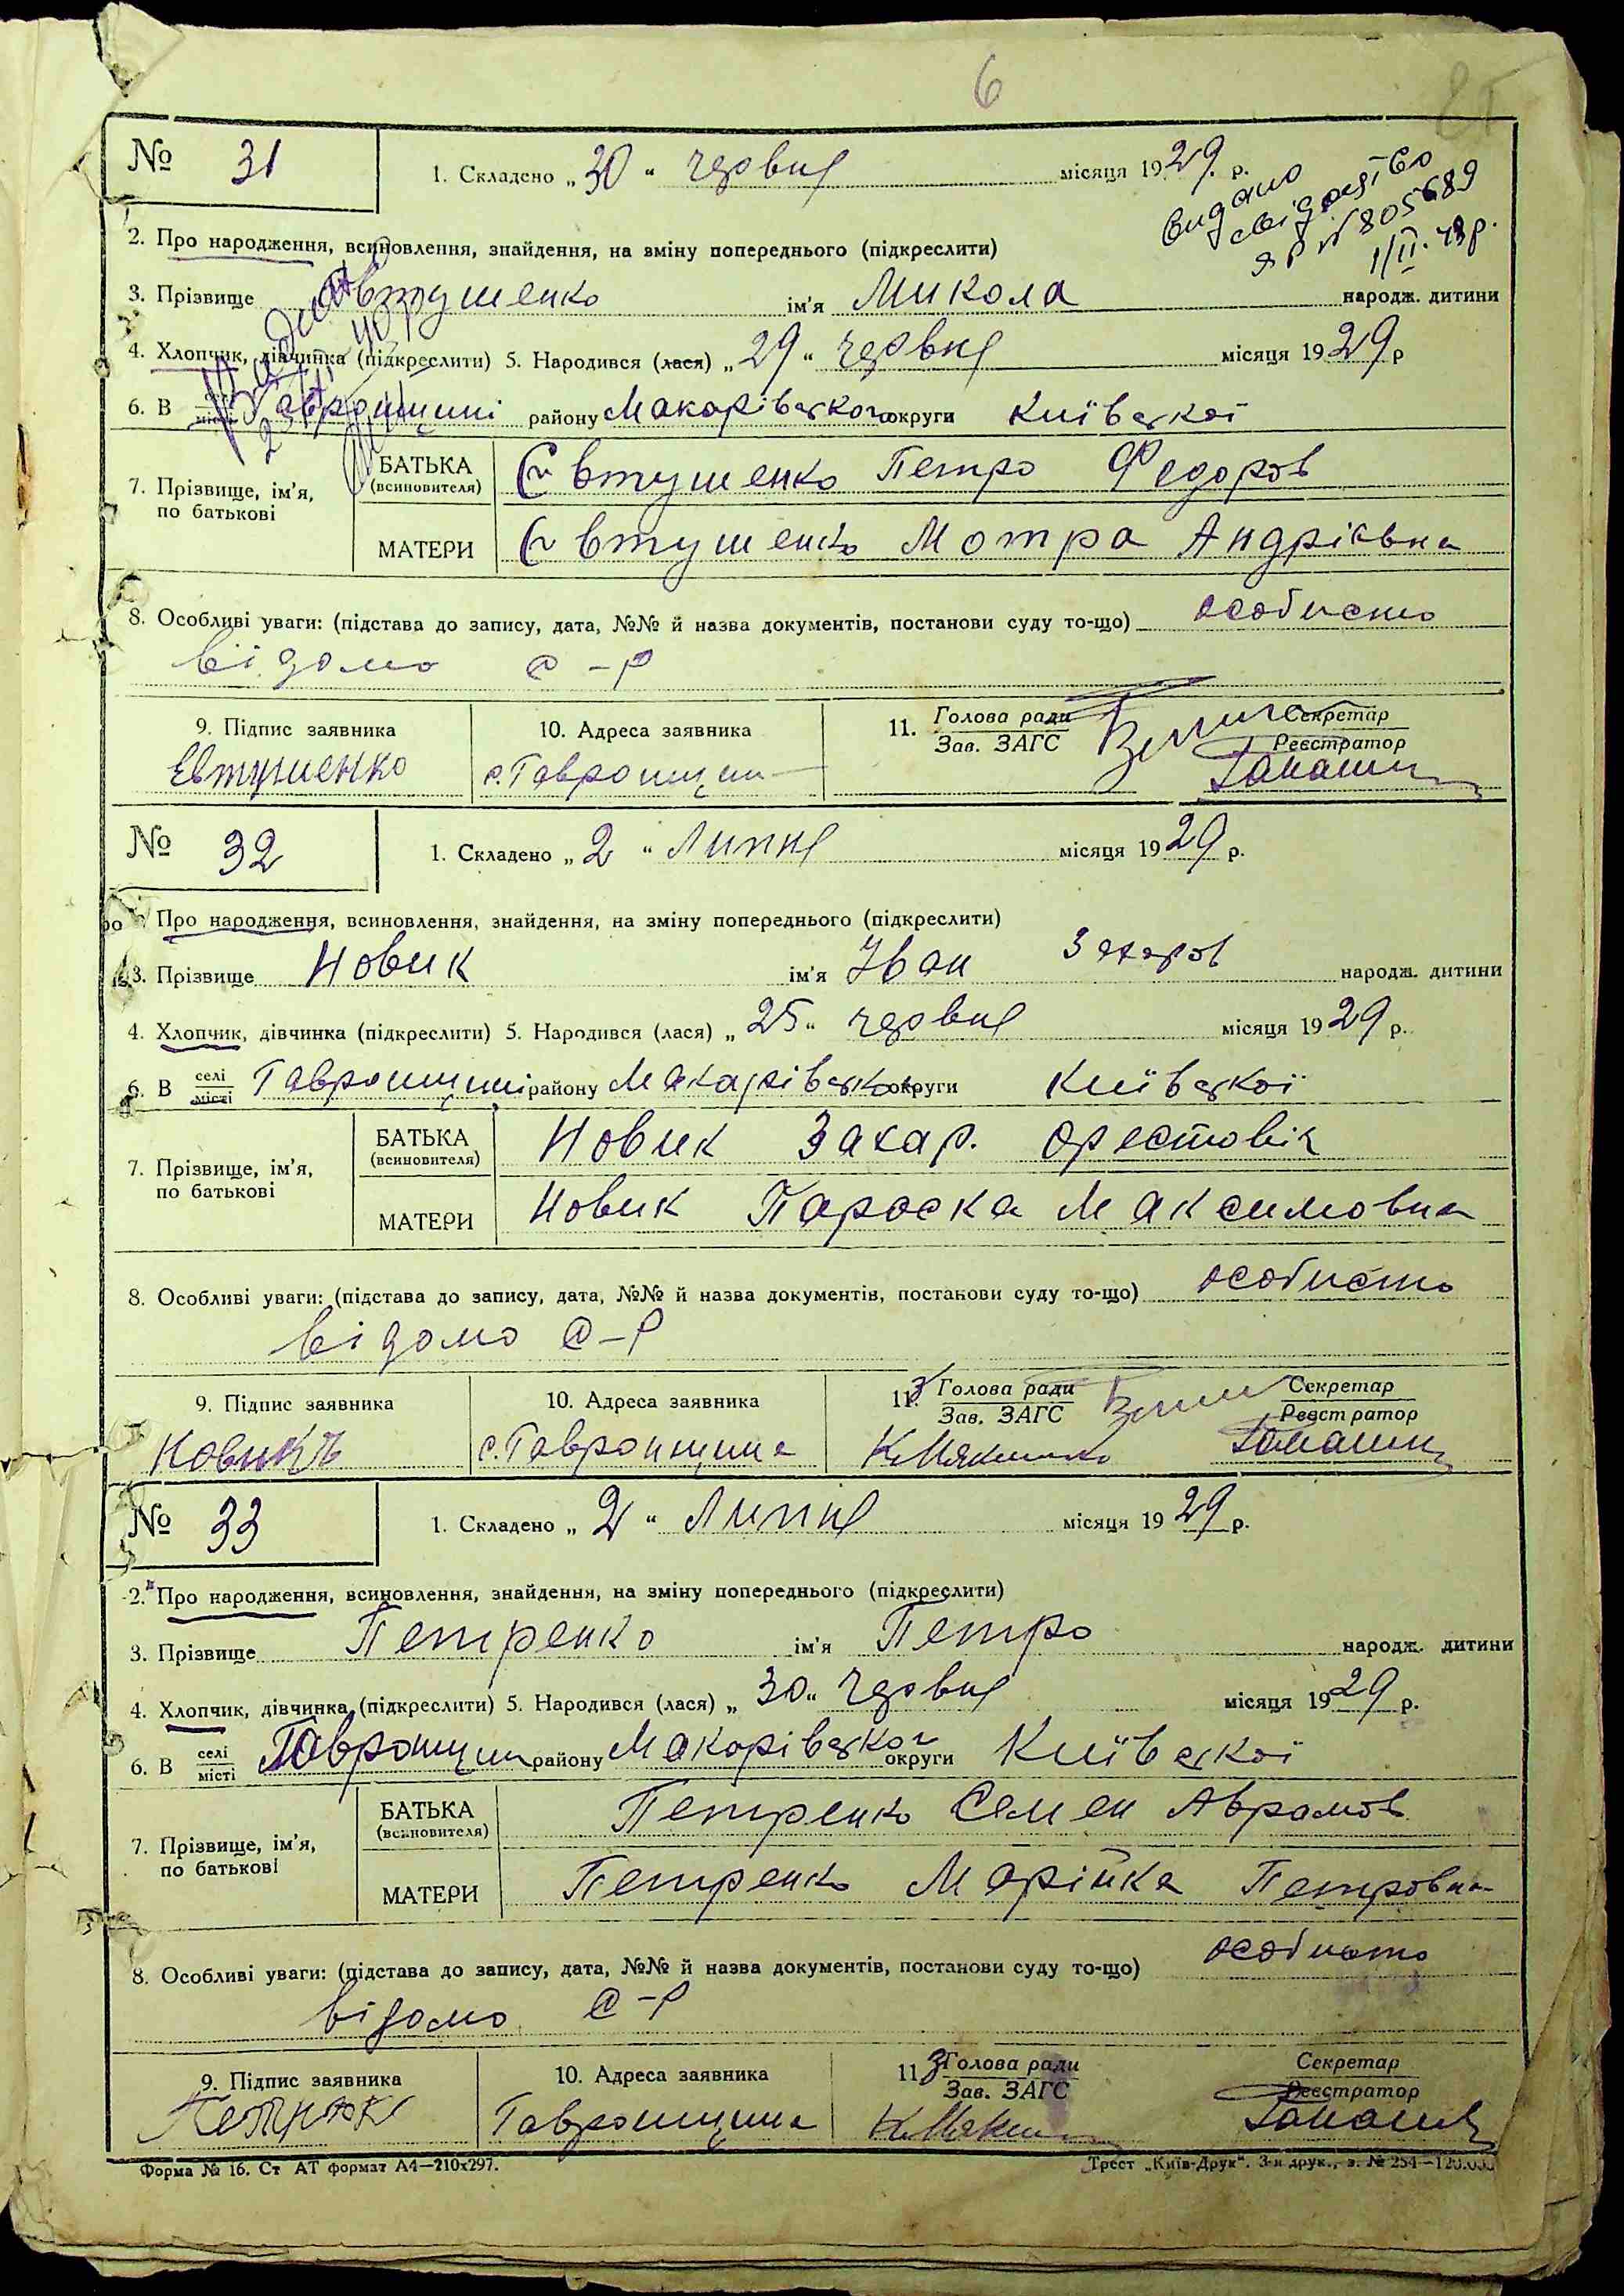 6
№ 31
1. Складено „ 30 “ червня місяця 1929 р.
видано
свідоцтво
яр № 805689
1/II. 43 р.
2. Про народження, всиновлення, знайдення, на зміну попереднього (підкреслити)
3. Прізвище Євтушенко ім'я Микола народж. дитини
4. Хлопчик, дівчинка (підкреслити) 5. Народився (лася) „ 29 “ червня місяця 1929 р
6. В Гавронщині району Макарівського округи Київської
7. Прізвище, ім'я, по батькові
БАТЬКА (всиновителя) Євтушенко Петро Федоров
МАТЕРИ Євтушенко Мотра Андріївна
8. Особливі уваги: (підстава до запису, дата, №№ й назва документів, постанови суду то-що) особисто
відомо с-р
9. Підпис заявника 10. Адреса заявника 11. Голова ради Зав. ЗАГС Секретар Реєстратор
Евтушенко с. Гавронщина
№ 32
1. Складено „ 2 “ Липня місяця 1929 р.
Про народження, всиновлення, знайдення, на зміну попереднього (підкреслити)
3. Прізвище Новик ім'я Іван Захаров народж. дитини
4. Хлопчик, дівчинка (підкреслити) 5. Народився (лася) „ 25 “ червня місяця 1929 р.
6. В селі місті Гавронщині району Макарівського округи Київської
7. Прізвище, ім'я, по батькові
БАТЬКА (всиновителя) Новик Захар. Орестовіч
МАТЕРИ Новик Параска Максимовна
8. Особливі уваги: (підстава до запису, дата, №№ й назва документів, постанови суду то-що) особисто
відомо с-р
9. Підпис заявника 10. Адреса заявника 11. Голова ради Зав. ЗАГС Секретар Реєстратор
Новикъ с. Гавронщина
№ 33
1. Складено „ 2 “ Липня місяця 1929 р.
2. Про народження, всиновлення, знайдення, на зміну попереднього (підкреслити)
3. Прізвище Петренко ім'я Петро народж. дитини
4. Хлопчик, дівчинка (підкреслити) 5. Народився (лася) „ 30 “ червня місяця 1929 р.
6. В селі місті Гавронщин району Макарівського округи Київської
7. Прізвище, ім'я, по батькові
БАТЬКА (всиновителя) Петренко Семен Аврамов
МАТЕРИ Петренко Марійка Петровна
8. Особливі уваги: (підстава до запису, дата, №№ й назва документів, постанови суду то-що) особисто
відомо с-р
9. Підпис заявника 10. Адреса заявника 11. Голова ради Зав. ЗАГС Секретар Реєстратор
Гавронщина
Форма № 16. Ст АТ формат А4—210х297. Трест „Київ-Друк“. 3-я друк., з. № 254—